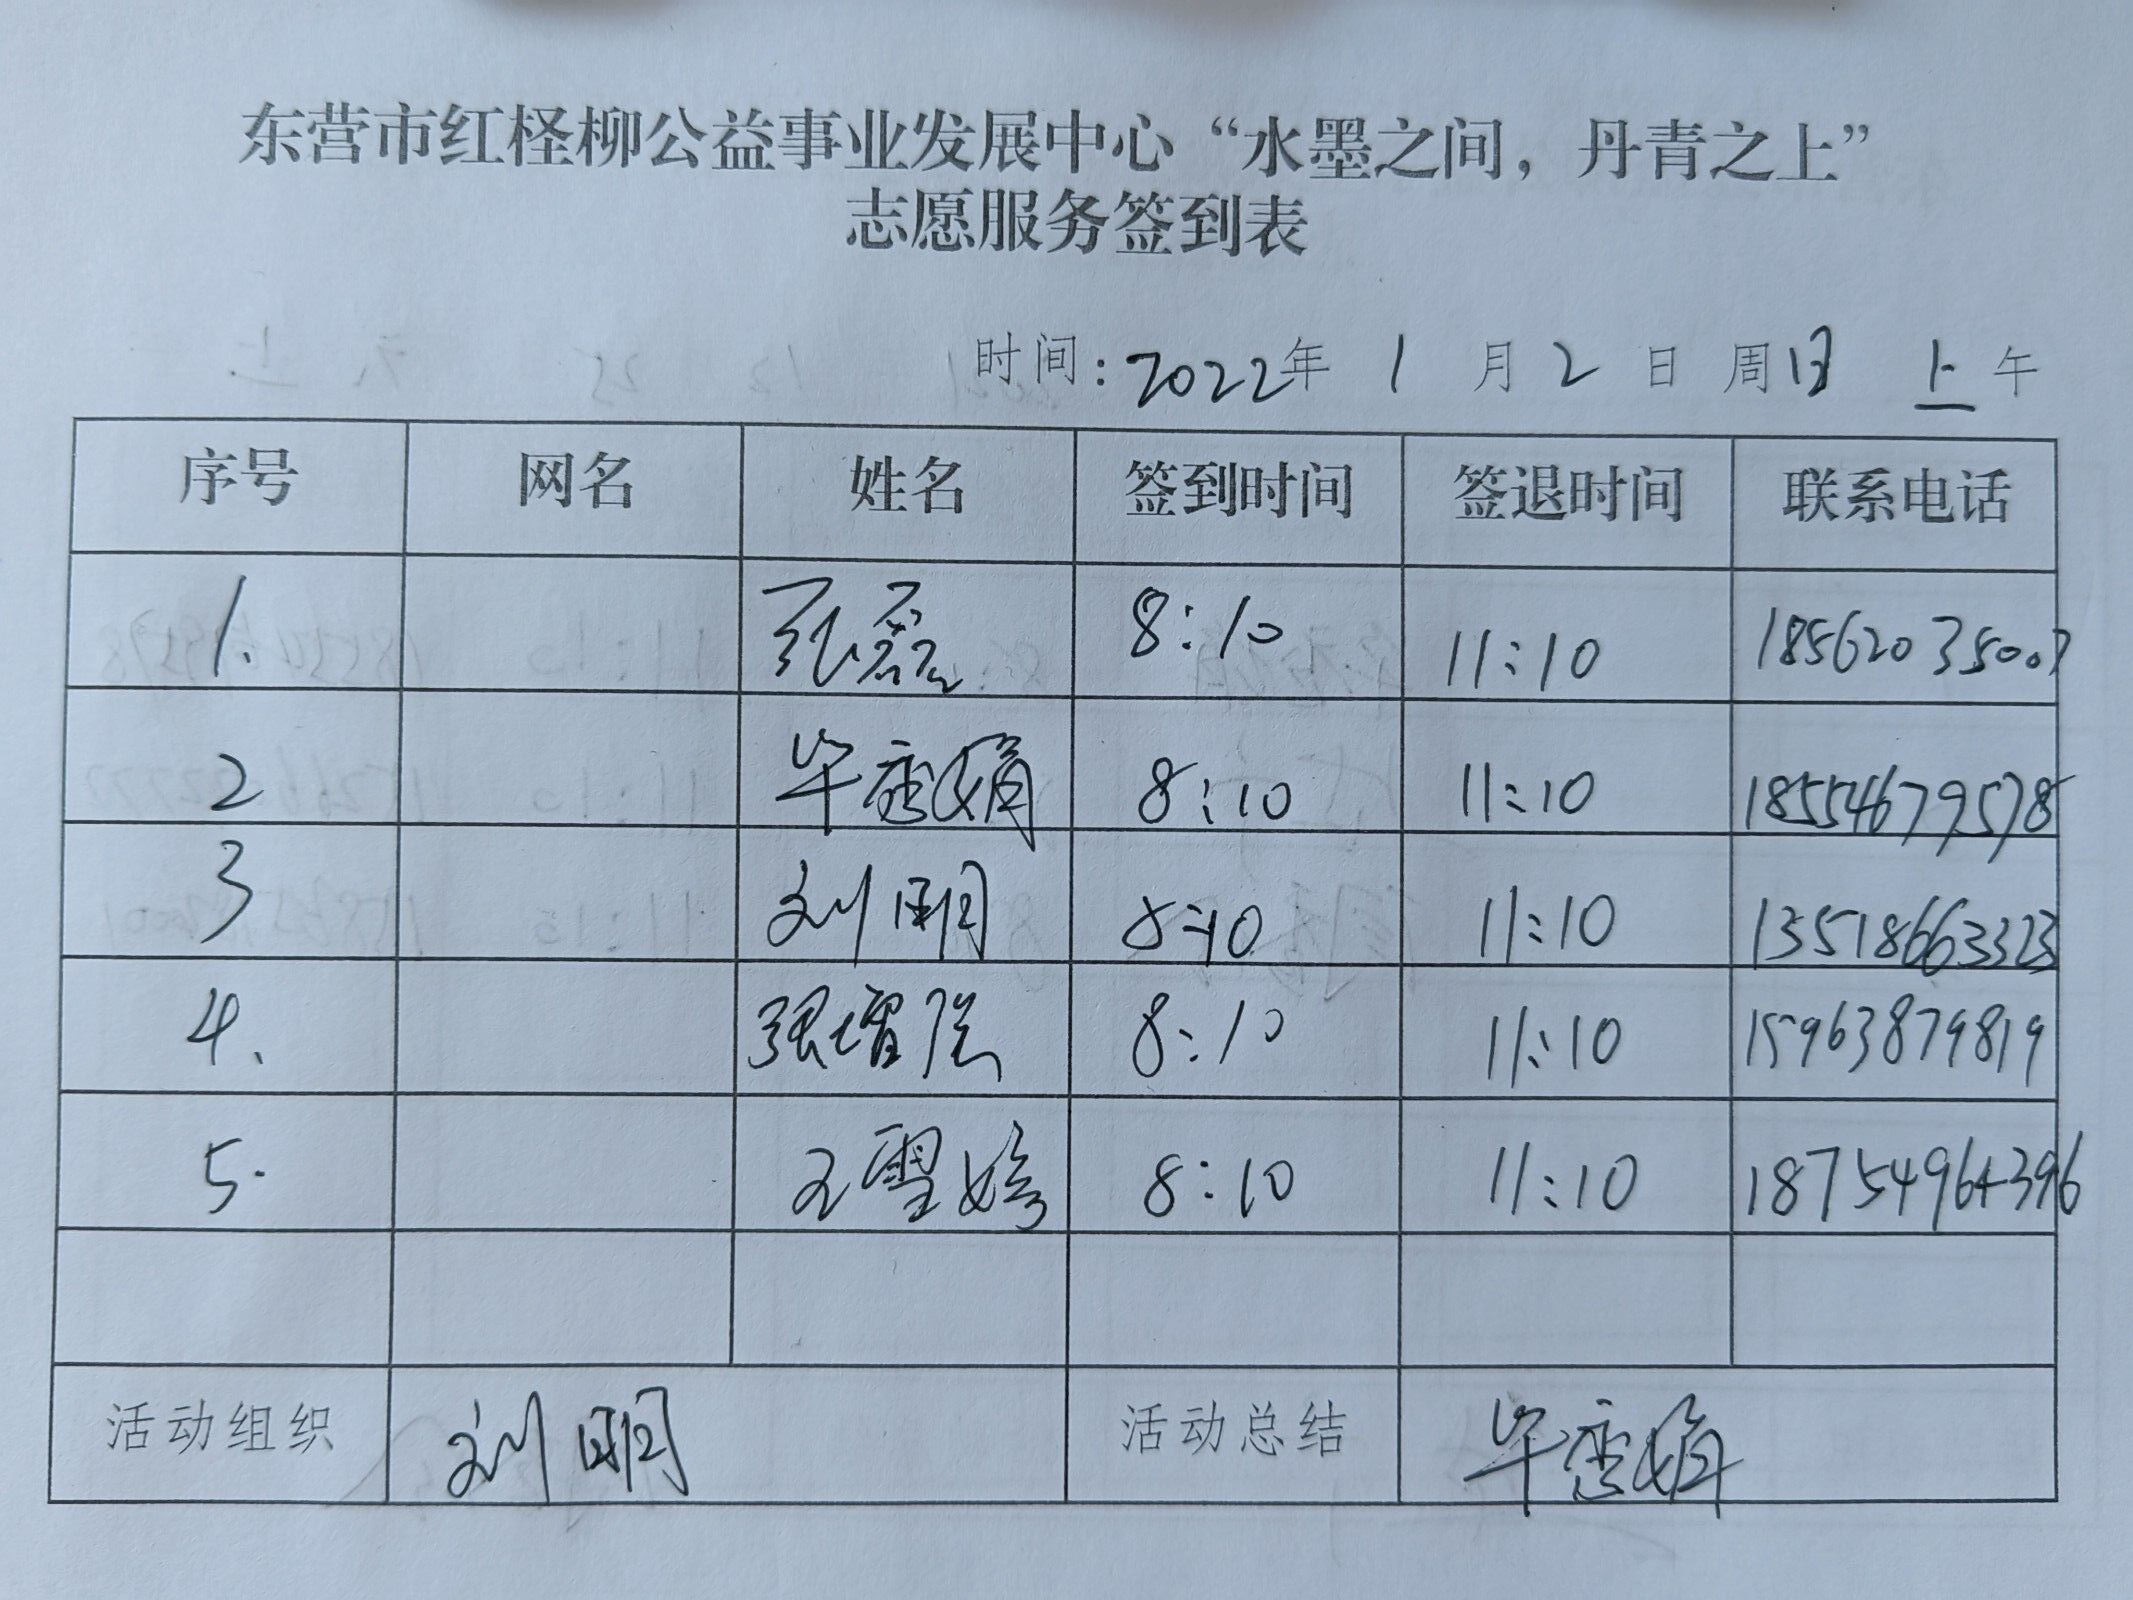 东营市红柽柳公益事业发展中心“水墨之间，丹青之上”
志愿服务签到表
时间：2022年 1 月 2 日 周日 上午
序号 网名 姓名 签到时间 签退时间 联系电话
1. 张磊 8:10 11:10 18562035007
2 毕娟 8:10 11:10 18554679578
3 刘明 8:10 11:10 13518663323
4. 张增 8:10 11:10 15963879819
5. 王雪婷 8:10 11:10 18754964396
活动组织 刘明 活动总结 毕娟